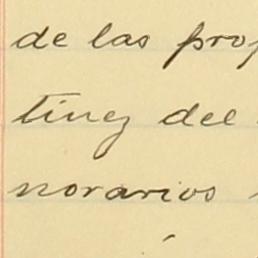 de las prop
tinez del
norarios